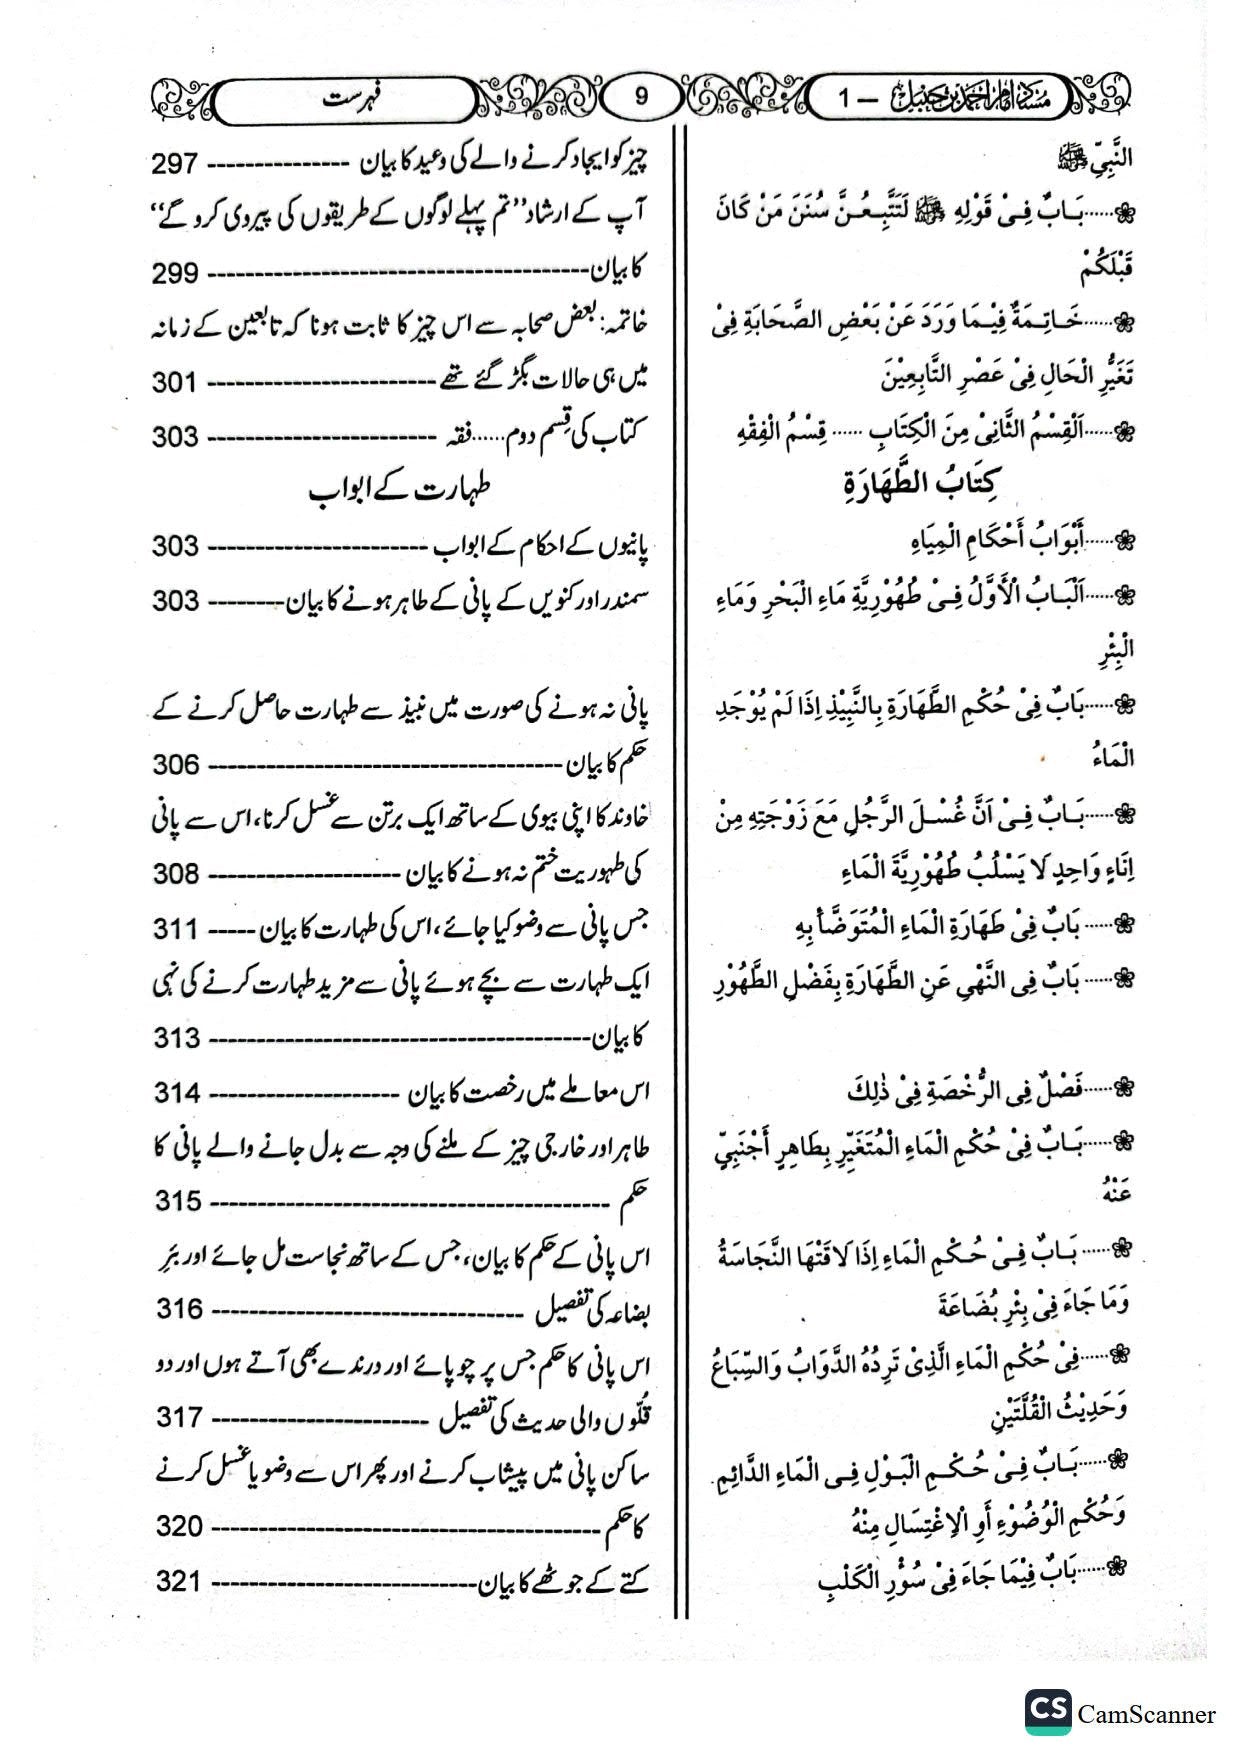 مسند امام احمد بن حنبل — 1
9
فہرست
النَّبِيِّ ﷺ
❀......بَابٌ فِيْ قَوْلِهِ ﷺ لَتَتَّبِعُنَّ سُنَنَ مَنْ كَانَ
قَبْلَكُمْ
❀......خَاتِمَةٌ فِيْمَا وَرَدَ عَنْ بَعْضِ الصَّحَابَةِ فِيْ
تَغَيُّرِ الْحَالِ فِيْ عَصْرِ التَّابِعِيْنَ
❀......اَلْقِسْمُ الثَّانِيْ مِنَ الْكِتَابِ ...... قِسْمُ الْفِقْهِ
كِتَابُ الطَّهَارَةِ
❀......أَبْوَابُ أَحْكَامِ الْمِيَاهِ
❀......اَلْبَابُ الْأَوَّلُ فِيْ طُهُوْرِيَّةِ مَاءِ الْبَحْرِ وَمَاءِ
الْبِئْرِ
❀......بَابٌ فِيْ حُكْمِ الطَّهَارَةِ بِالنَّبِيْذِ اِذَا لَمْ يُوْجَدِ
الْمَاءُ
❀......بَابٌ فِيْ اَنَّ غُسْلَ الرَّجُلِ مَعَ زَوْجَتِهِ مِنْ
اِنَاءٍ وَاحِدٍ لَا يَسْلُبُ طُهُوْرِيَّةَ الْمَاءِ
❀......بَابٌ فِيْ طَهَارَةِ الْمَاءِ الْمُتَوَضَّأِ بِهِ
❀......بَابٌ فِي النَّهْيِ عَنِ الطَّهَارَةِ بِفَضْلِ الطَّهُوْرِ
❀......فَصْلٌ فِي الرُّخْصَةِ فِيْ ذٰلِكَ
❀......بَابٌ فِيْ حُكْمِ الْمَاءِ الْمُتَغَيِّرِ بِطَاهِرٍ أَجْنَبِيٍّ
عَنْهُ
❀......بَابٌ فِيْ حُكْمِ الْمَاءِ إِذَا لَاقَتْهَا النَّجَاسَةُ
وَمَا جَاءَ فِيْ بِئْرِ بُضَاعَةَ
❀......فِيْ حُكْمِ الْمَاءِ الَّذِيْ تَرِدُهُ الدَّوَابُ وَالسِّبَاعُ
وَحَدِيْثُ الْقُلَّتَيْنِ
❀......بَابٌ فِيْ حُكْمِ الْبَوْلِ فِي الْمَاءِ الدَّائِمِ
وَحُكْمِ الْوُضُوْءِ أَوِ الْاِغْتِسَالِ مِنْهُ
❀......بَابٌ فِيْمَا جَاءَ فِيْ سُؤْرِ الْكَلْبِ
چیز کو ایجاد کرنے والے کی وعید کا بیان --------------- 297
آپ کے ارشاد ’’تم پہلے لوگوں کے طریقوں کی پیروی کرو گے‘‘
کا بیان---------------------------------------- 299
خاتمہ: بعض صحابہ سے اس چیز کا ثابت ہونا کہ تابعین کے زمانہ
میں ہی حالات بگڑ گئے تھے------------------------ 301
کتاب کی قِسم دوم......فقہ ------------------------ 303
طہارت کے ابواب
پانیوں کے احکام کے ابواب ----------------------- 303
سمندر اور کنویں کے پانی کے طاہر ہونے کا بیان-------- 303
پانی نہ ہونے کی صورت میں نبیذ سے طہارت حاصل کرنے کے
حکم کا بیان ------------------------------------- 306
خاوند کا اپنی بیوی کے ساتھ ایک برتن سے غسل کرنا، اس سے پانی
کی طہوریت ختم نہ ہونے کا بیان -------------------- 308
جس پانی سے وضو کیا جائے، اس کی طہارت کا بیان ----- 311
ایک طہارت سے بچے ہوئے پانی سے مزید طہارت کرنے کی نہی
کا بیان---------------------------------------- 313
اس معاملے میں رخصت کا بیان -------------------- 314
طاہر اور خارجی چیز کے ملنے کی وجہ سے بدل جانے والے پانی کا
حکم ------------------------------------------ 315
اس پانی کے حکم کا بیان، جس کے ساتھ نجاست مل جائے اور بئرِ
بضاعہ کی تفصیل --------------------------------- 316
اس پانی کا حکم جس پر چوپائے اور درندے بھی آتے ہوں اور دو
قُلّوں والی حدیث کی تفصیل ----------------------- 317
ساکن پانی میں پیشاب کرنے اور پھر اس سے وضو یا غسل کرنے
کا حکم ----------------------------------------- 320
کتے کے جوٹھے کا بیان---------------------------- 321
CS CamScanner